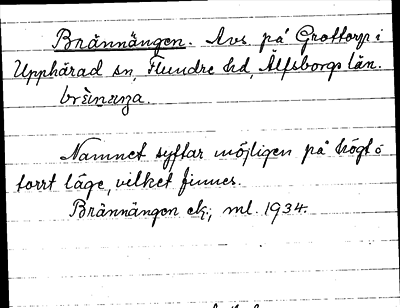 Brännängen. Avs. på Grottorp i
Upphärad sn, Flundre hd, Älfsborgs län.
brä̀nanza.
Namnet syftar möjligen på högt o
torrt läge, vilket finnes.
Brännängen ek., ml. 1934.